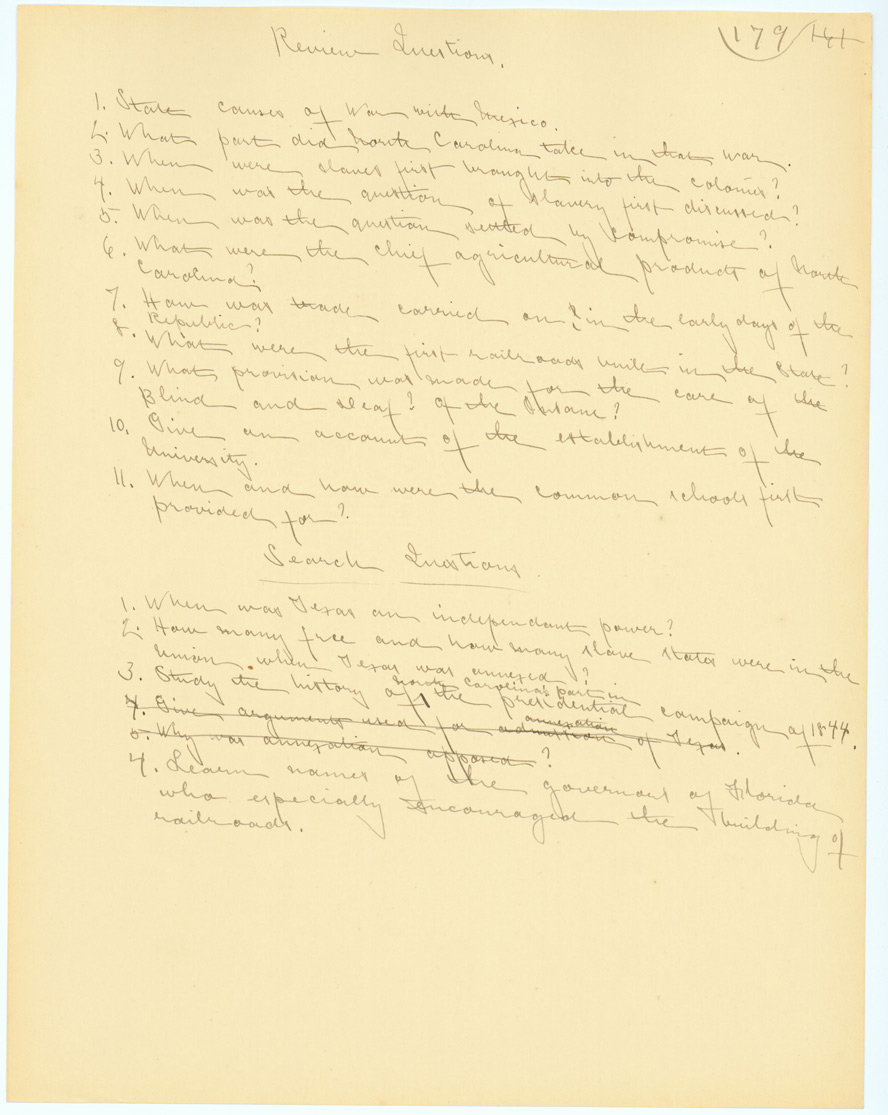 179 141
Review Questions.
1. State causes of War with Mexico.
2. What part did North Carolina take in that war.
3. When were slaves first brought into the colonies?
4. When was the question of slavery first discussed?
5. When was the question settled by compromise?
6. What were the chief agricultural products of North
Carolina?
7. How was trade carried on? in the early days of the
Republic?
8. What were the first railroads built in the State?
9. What provision was made for the care of the
Blind and Deaf? Of the Insane?
10. Give an account of the establishment of the
University.
11. When and how were the common schools first
provided for?
Search Questions.
1. When was Texas an independant power?
2. How many free and how many slave states were in the
Union when Texas was annexed?
North Carolina's part in
3. Study the history of the presidential campaign of 1844.
annexation
4. Give arguments used for admission of Texas.
5. Why was annexation opposed?
4. Learn names of the governors of Florida
who especially encouraged the building of
railroads.